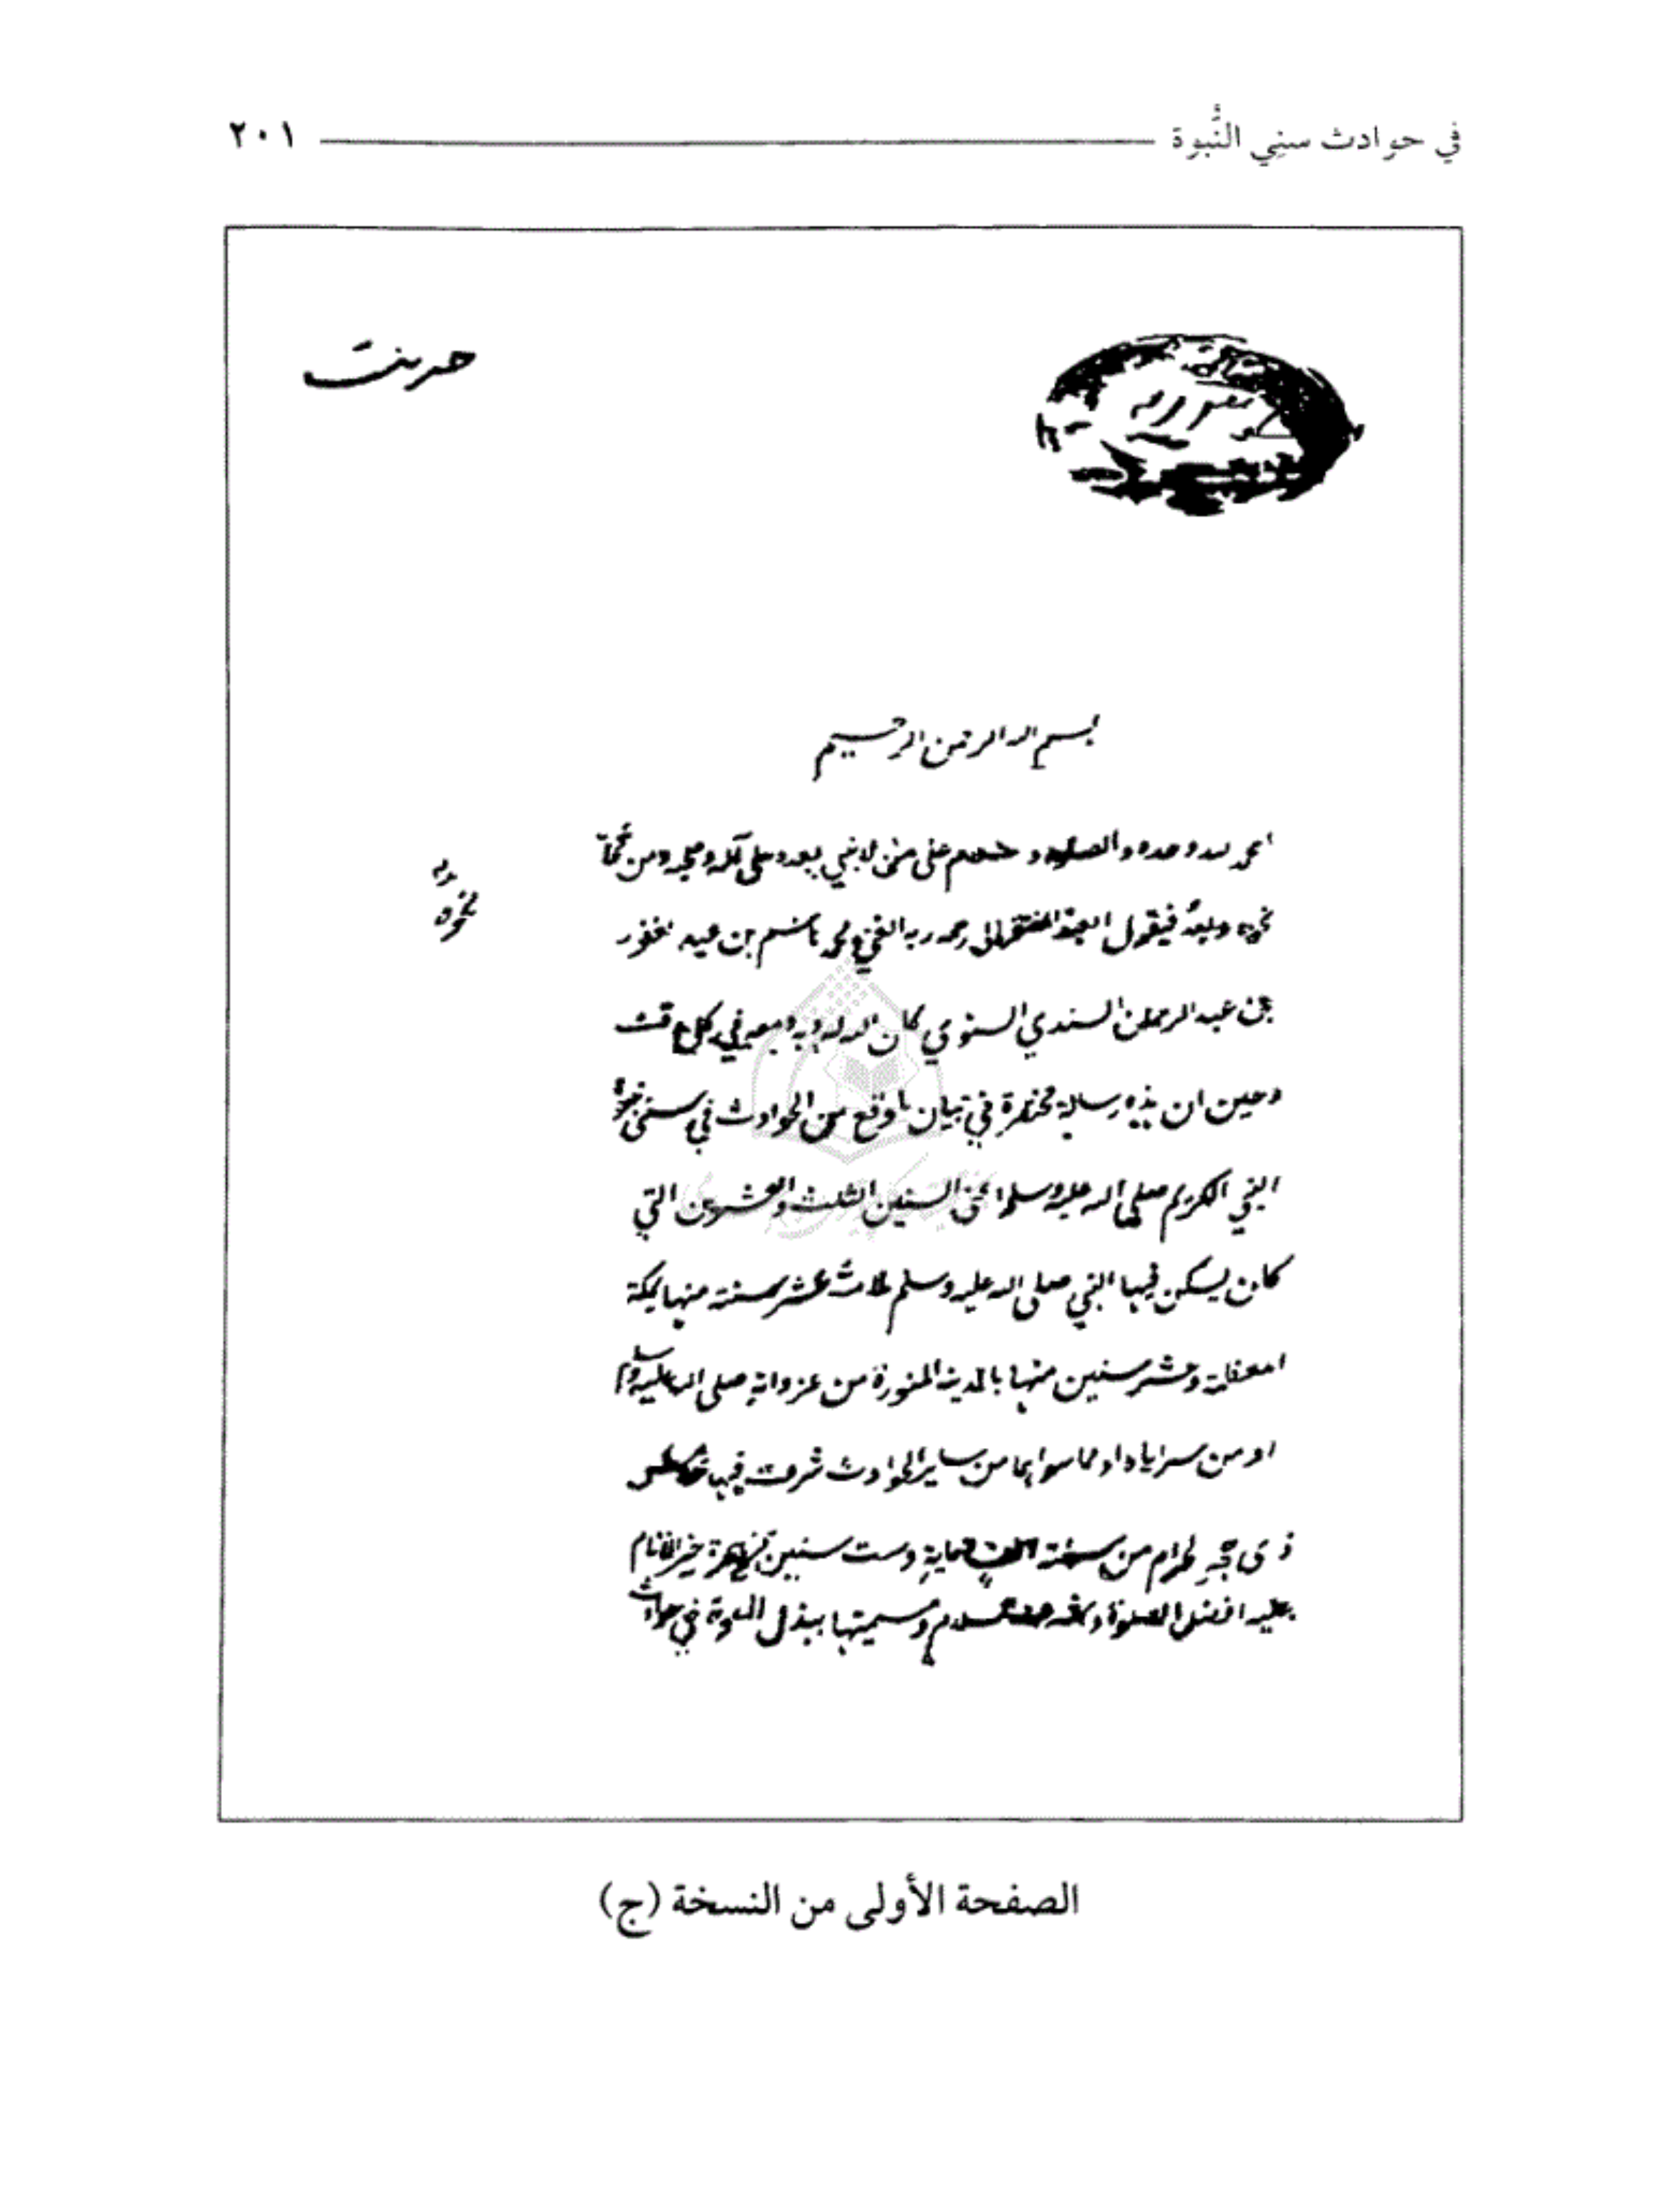 في حوادث سنِي النُّبوة ٢٠١
حديث
بسم الله الرحمن الرحيم
الحمد لله وحده والصلوة و على من لا نبي بعده وعلى آله وصحبه ومن نحا
نحوه وبعد فيقول العبد المفتقر الى رحمة ربه الغني محمد هاشم بن عبد الغفور
نحوه
بن عبد الرحمن السندي التتوي كان الله له وبه ومعه في كل وقت
وحين ان هذه رسالة مختصرة في بيان ما وقع من الحوادث في سني نبوة
النبي الكريم صلى الله عليه وسلم اعني السنين الثلث والعشرين التي
كان يسكن فيها النبي صلى الله عليه وسلم ثلاث عشر سنة منها بمكة
المعظمة وعشر سنين منها بالمدينة المنورة من غزواته صلى الله عليه وسلم
او من سراياه او مما سواهما من ساير الحوادث شرعت فيها خامس
ذي الحرام من سنة الف ومائة وست وستين من هجرة خير الانام
عليه افضل الصلوة و السلام وسميتها ببذل القوة في حوادث
الصفحة الأولى من النسخة (ج)